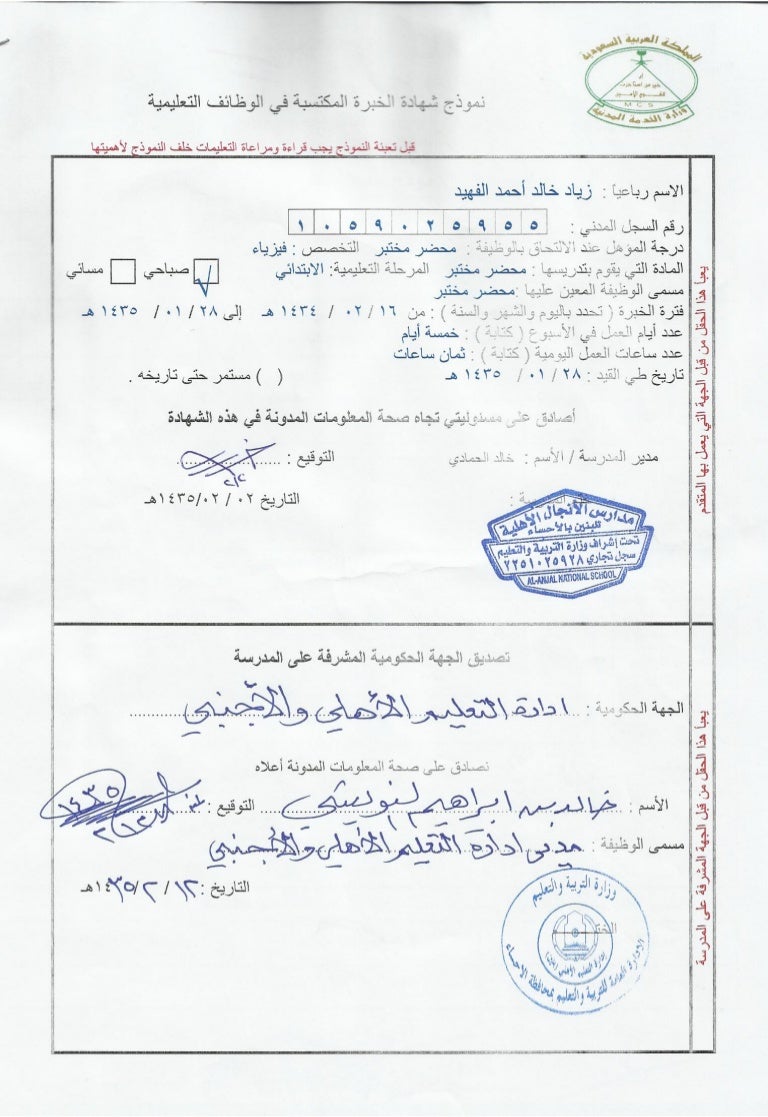 المملكة العربية السعودية
M C S
وزارة الخدمة المدنية
نموذج شهادة الخبرة المكتسبة في الوظائف التعليمية
قبل تعبئة النموذج يجب قراءة ومراعاة التعليمات خلف النموذج لأهميتها
يعبأ هذا الحقل من قبل الجهة التي يعمل بها المتقدم
الاسم رباعياً : زياد خالد أحمد الفهيد
رقم السجل المدني : ١٠٥٩٠٢٥٩٥٥
درجة المؤهل عند الالتحاق بالوظيفة : محضر مختبر التخصص : فيزياء
المادة التي يقوم بتدريسها : محضر مختبر المرحلة التعليمية: الابتدائي صباحي مسائي
مسمى الوظيفة المعين عليها :محضر مختبر
فترة الخبرة ( تحدد باليوم والشهر والسنة ) : من ١٦ / ٠٢ / ١٤٣٤ هـ إلى ٢٨ / ٠١ / ١٤٣٥ هـ
عدد أيام العمل في الأسبوع ( كتابة ) : خمسة أيام
عدد ساعات العمل اليومية ( كتابة ) : ثمان ساعات
تاريخ طي القيد : ٢٨ / ٠١ / ١٤٣٥ هـ ( ) مستمر حتى تاريخه .
أصادق على مسئوليتي تجاه صحة المعلومات المدونة في هذه الشهادة
مدير المدرسة / الأسم : خالد الحمادي التوقيع :
التاريخ ٠٢ / ١٤٣٥/٠٢هـ
مدارس الأنجال الأهلية
للبنين بالأحساء
تحت إشراف وزارة التربية والتعليم
سجل تجاري ٢٢٥١٠٢٥٩٢٨
AL-ANJAL NATIONAL SCHOOL
يعبأ هذا الحقل من قبل الجهة المشرفة على المدرسة
تصديق الجهة الحكومية المشرفة على المدرسة
الجهة الحكومية : ادارة التعليم الأهلي والأجنبي
نصادق على صحة المعلومات المدونة أعلاه
الأسم : خالد بن ابراهيم التوقيع :
مسمى الوظيفة : مدير ادارة التعليم الأهلي والأجنبي
التاريخ : ١٢ / ٢ / ١٤٣٥هـ
وزارة التربية والتعليم
الإدارة العامة للتربية والتعليم بمحافظة الاحساء